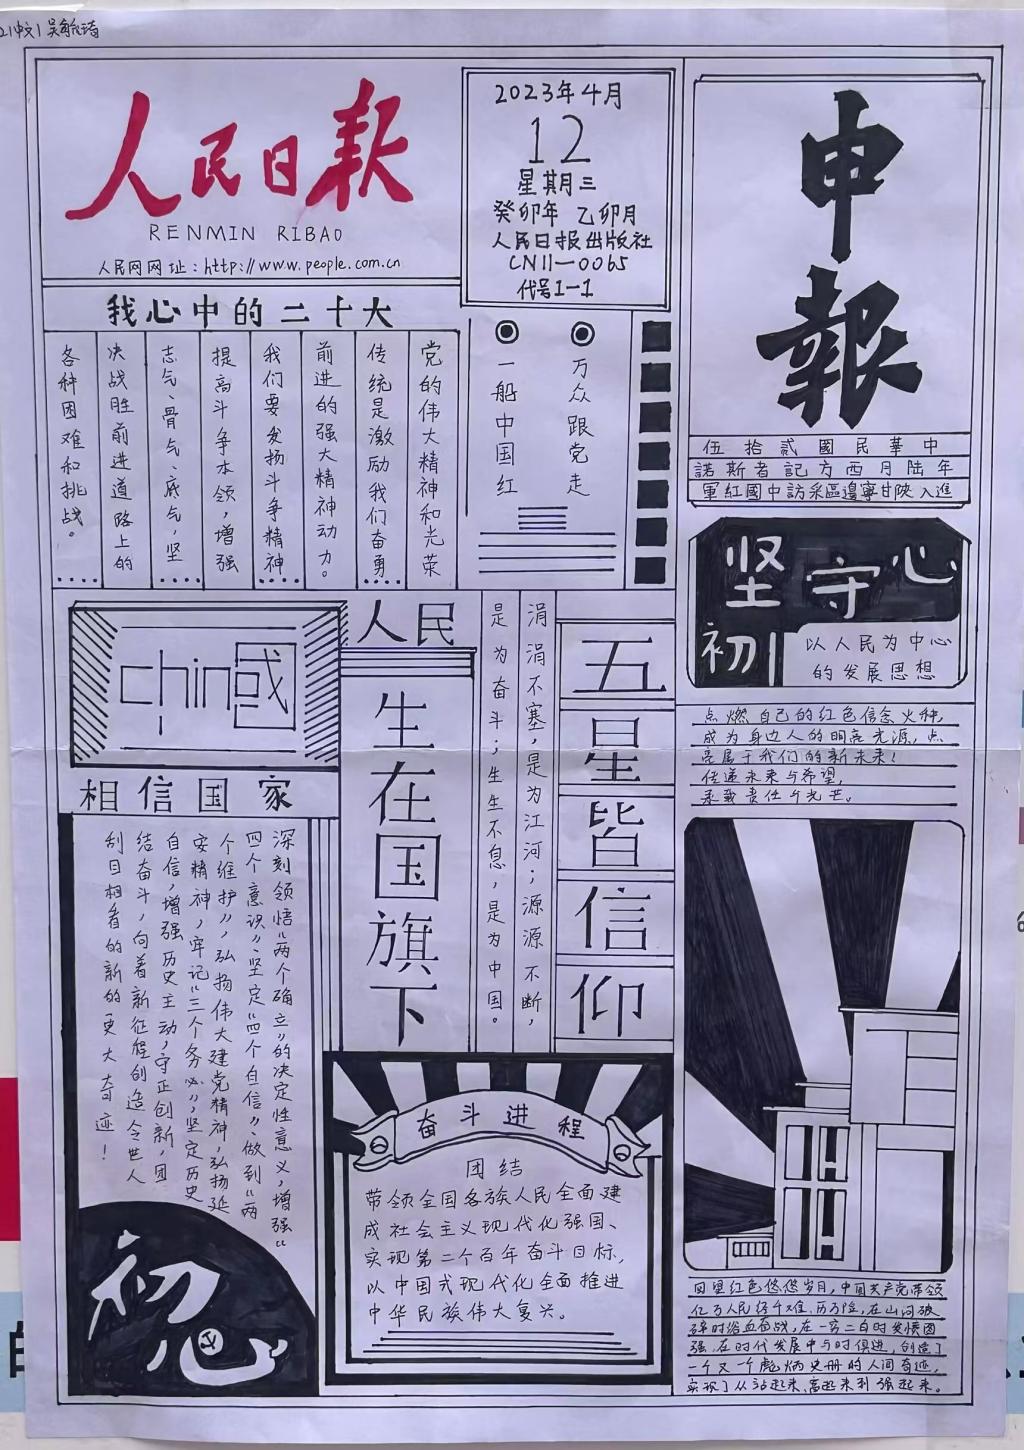 21中文1 吴敏琦
人民日报
RENMIN RIBAO
人民网网址:http://www.people.com.cn
2023年4月
12
星期三
癸卯年 乙卯月
人民日报出版社
CN11-0065
代号1-1
申報
伍拾貳國民華中
諾斯者記方西月陆年
軍紅國中訪采區邊寧甘陕入進
我心中的二十大
党的伟大精神和光荣
传统是激励我们奋勇
前进的强大精神动力。
我们要发扬斗争精神
提高斗争本领,增强
志气、骨气、底气,坚
决战胜前进道路上的
各种困难和挑战。
万众跟党走
一船中国红
坚守初心
以人民为中心
的发展思想
点燃自己的红色信念火种,
成为身边人的明亮光源,点
亮属于我们的新未来!
传递未来与希望,
承载责任与光芒。
chin國
相信国家
人民
生在国旗下
涓涓不塞,是为江河;源源不断,
是为奋斗;生生不息,是为中国。
五星皆信仰
深刻领悟“两个确立”的决定性意义,增强“
四个意识”、坚定“四个自信”、做到“两
个维护”,弘扬伟大建党精神,弘扬延
安精神,牢记“三个务必”,坚定历史
自信,增强历史主动,守正创新,团
结奋斗,向着新征程创造令世人
刮目相看的新的更大奇迹!
初心
奋斗进程
团结
带领全国各族人民全面建
成社会主义现代化强国、
实现第二个百年奋斗目标,
以中国式现代化全面推进
中华民族伟大复兴。
回望红色悠悠岁月,中国共产党带领
亿万人民经千难,历万险,在山河破
碎时浴血奋战,在一穷二白时发愤图
强,在时代发展中与时俱进,创造了
一个又一个彪炳史册的人间奇迹,
实现了从站起来、富起来到强起来。